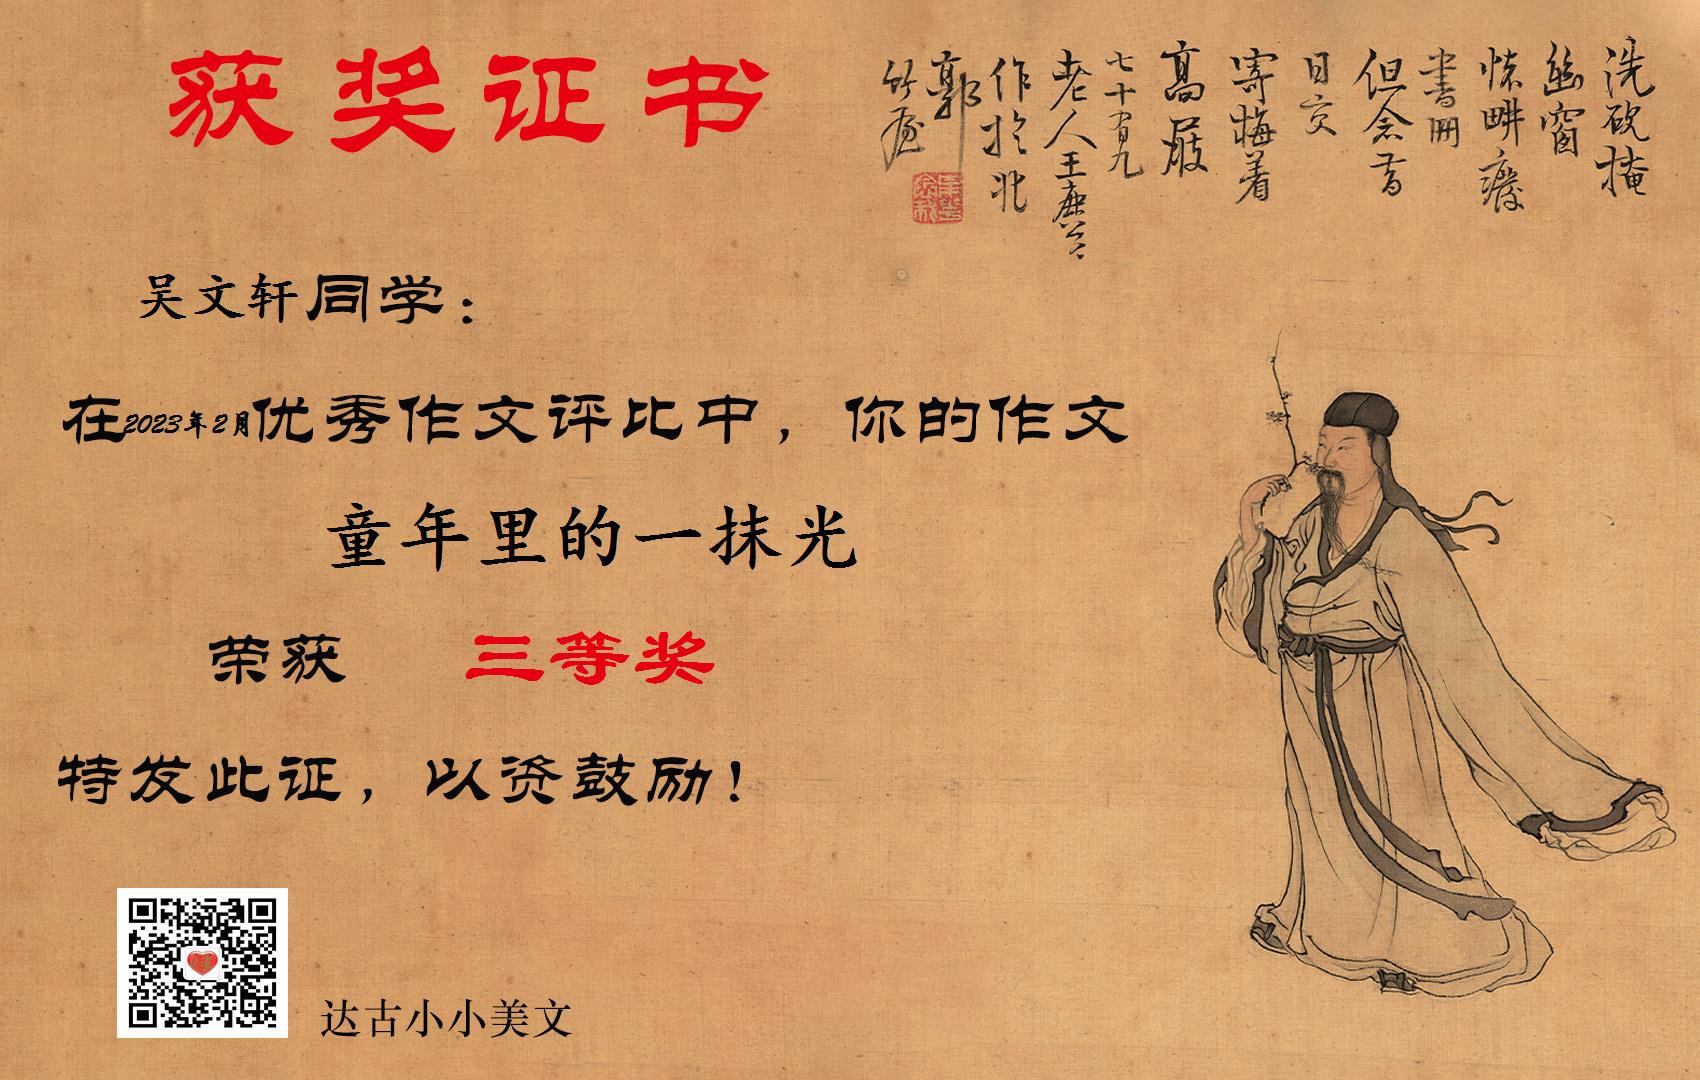 获奖证书
洗砚掩
幽窗
怀畊
书册
但念昔
日交
寄梅着
高
七十有九
老人王鹿公
作于北
郭
竹
吴文轩同学：
在2023年2月优秀作文评比中，你的作文
童年里的一抹光
荣获 三等奖
特发此证，以资鼓励！
达古小小美文